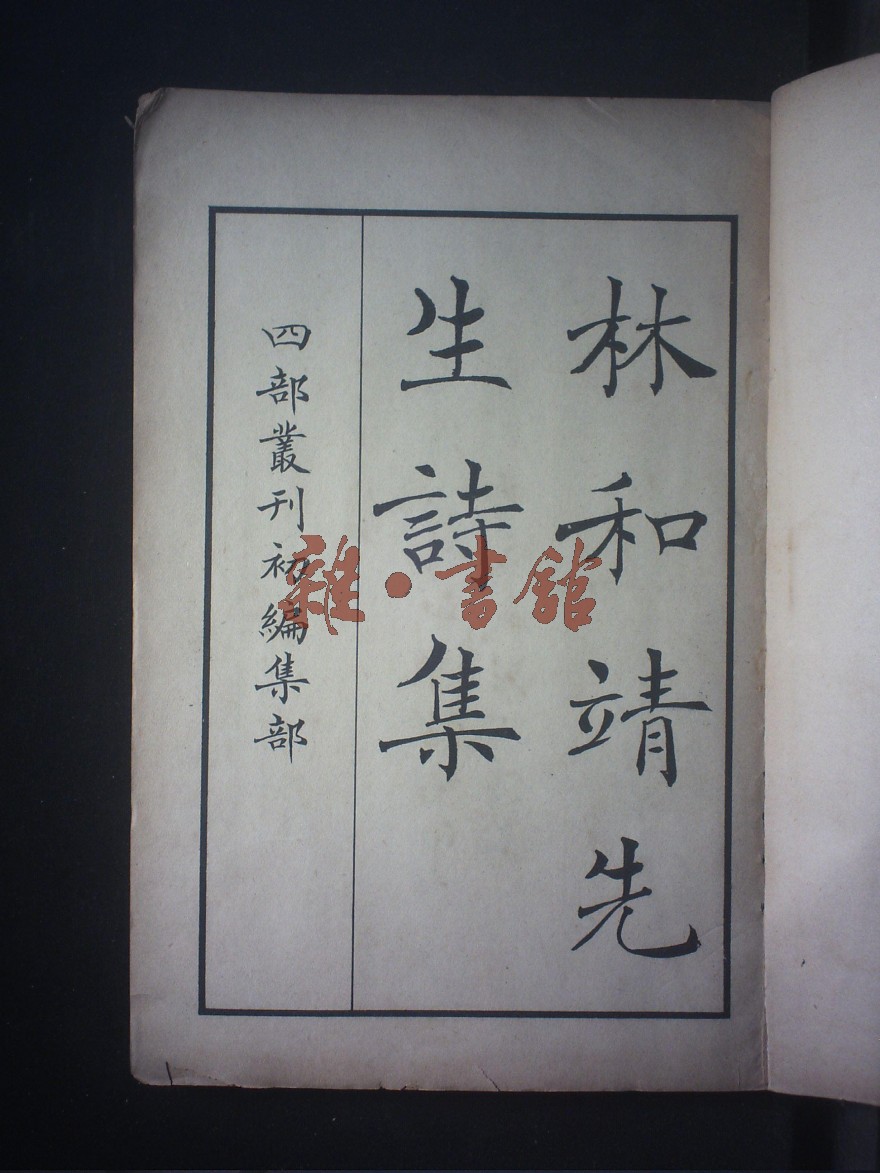 林和靖先
生詩集
四部叢刊初編集部
雜·書館